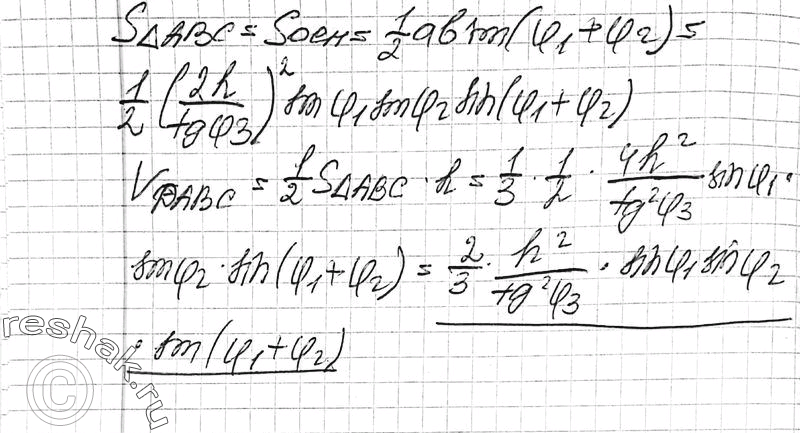 S△ABC = Sосн = 1/2 ab sin(φ1+φ2) =
1/2 (2h/tgφ3)² sinφ1 sinφ2 sin(φ1+φ2)
VPABC = 1/2 S△ABC · h = 1/3 · 1/2 · 4h²/tg²φ3 sinφ1 ·
sinφ2 · sin(φ1+φ2) = 2/3 · h²/tg²φ3 · sinφ1 sinφ2
· sin(φ1+φ2)
reshak.ru
©